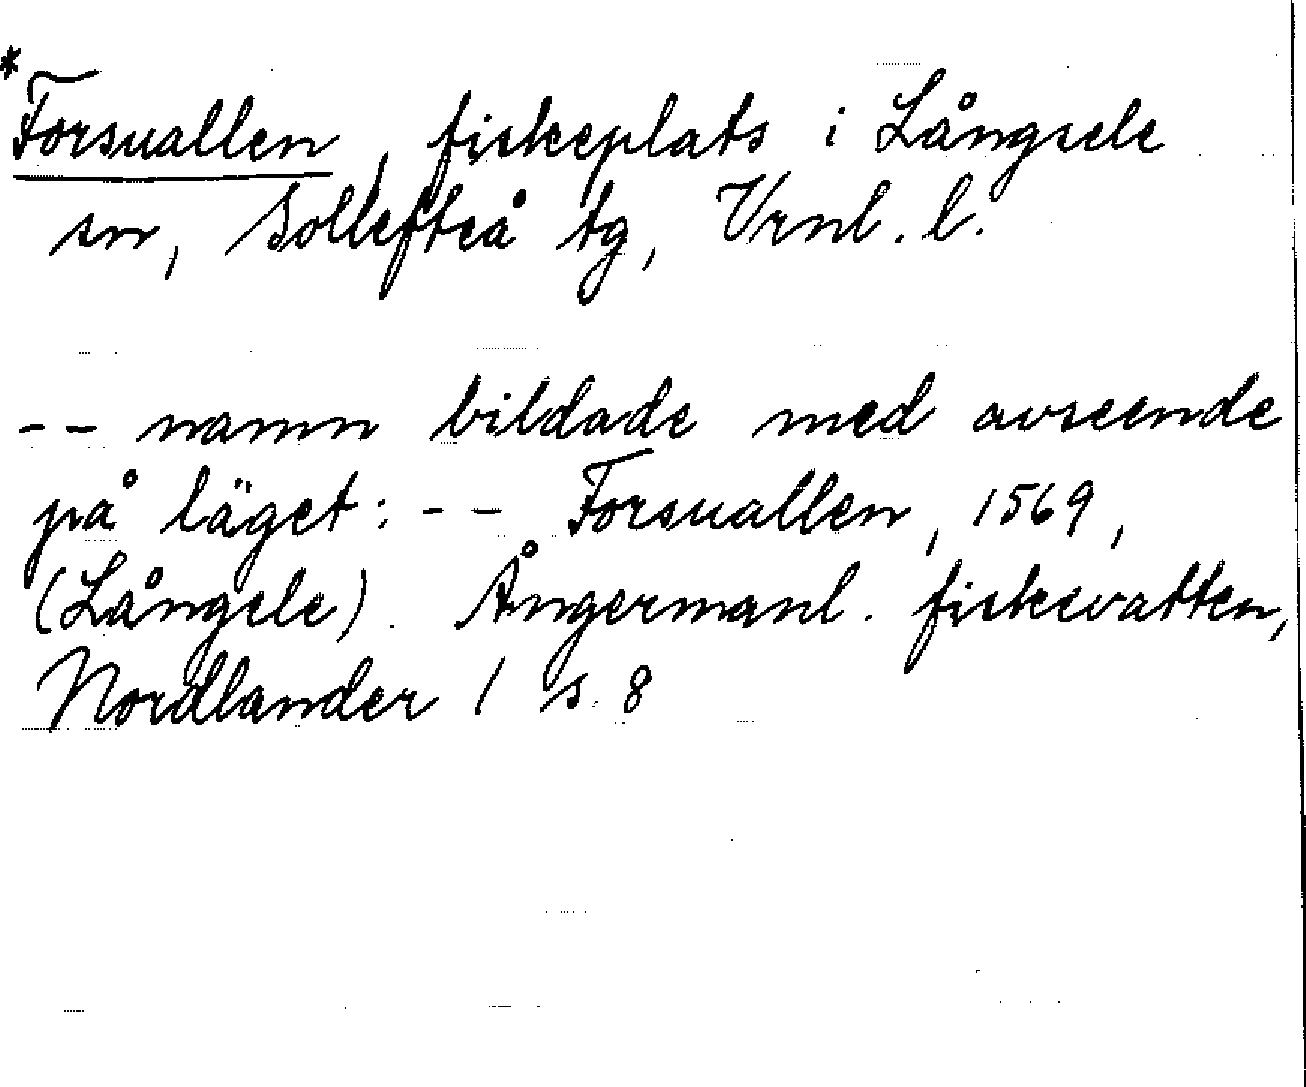 *
Forsuallen, fiskeplats i Långsele
sn, Sollefteå tg, Vrnl. l.
-- namn bildade med avseende
på läget: -- Forsuallen, 1569,
(Långsele). Ångermanl. fiskevatten,
Nordlander 1 s. 8